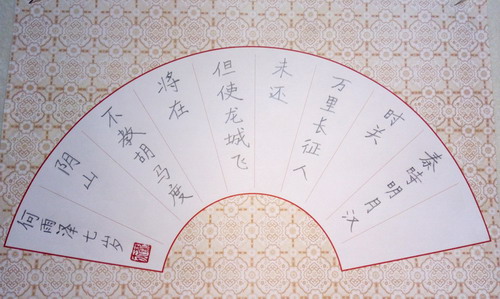 秦時明月汉
时关
万里长征人
未还
但使龙城飞
将在
不教胡马度
阴山
何雨泽七岁